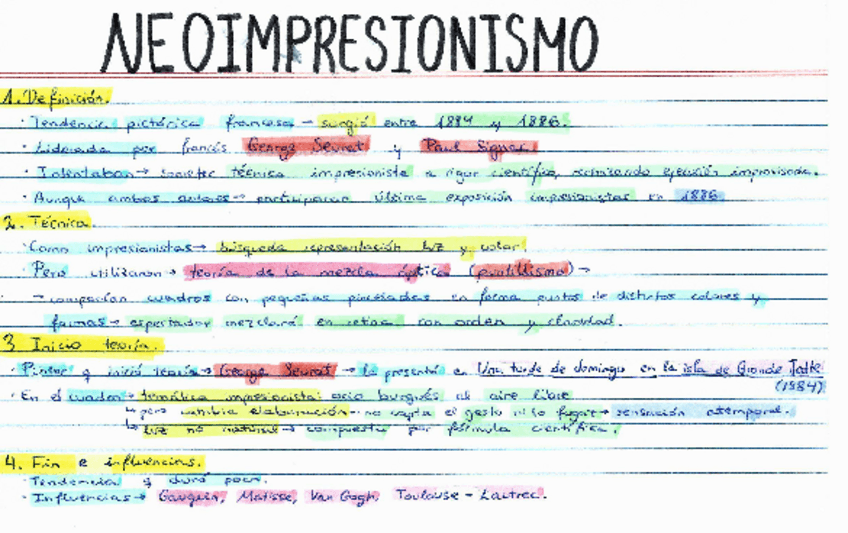 NEOIMPRESIONISMO
1. Definición.
· Tendencia pictórica francesa → surgió entre 1884 y 1886.
· Liderada por francés George Seurat y Paul Signac.
· Intentaban → someter técnica impresionista a rigor científico, rechazando ejecución improvisada.
· Aunque ambos autores → participaron última exposición impresionistas en 1886
2. Técnica.
· Como impresionistas → búsqueda representación luz y color.
· Pero utilizaron → teoría de la mezcla óptica (puntillismo) →
→ componían cuadros con pequeñas pinceladas en forma puntos de distintos colores y
formas → espectador mezclará en retina con orden y claridad.
3 Inicio teoría.
· Pintor q inició teoría → George Seurat → la presentó en Una tarde de domingo en la isla de Grande Jatte
(1984)
· En el cuadro → temática impresionista: ocio burgués al aire libre
↳ pero cambia elaboración - no capta el gesto ni lo fugaz → sensación atemporal.
↳ luz no natural → compuesta por fórmula científica.
4. Fin e influencias.
· Tendencia q duró poco.
· Influencias → Gauguin, Matisse, Van Gogh, Toulouse - Lautrec.